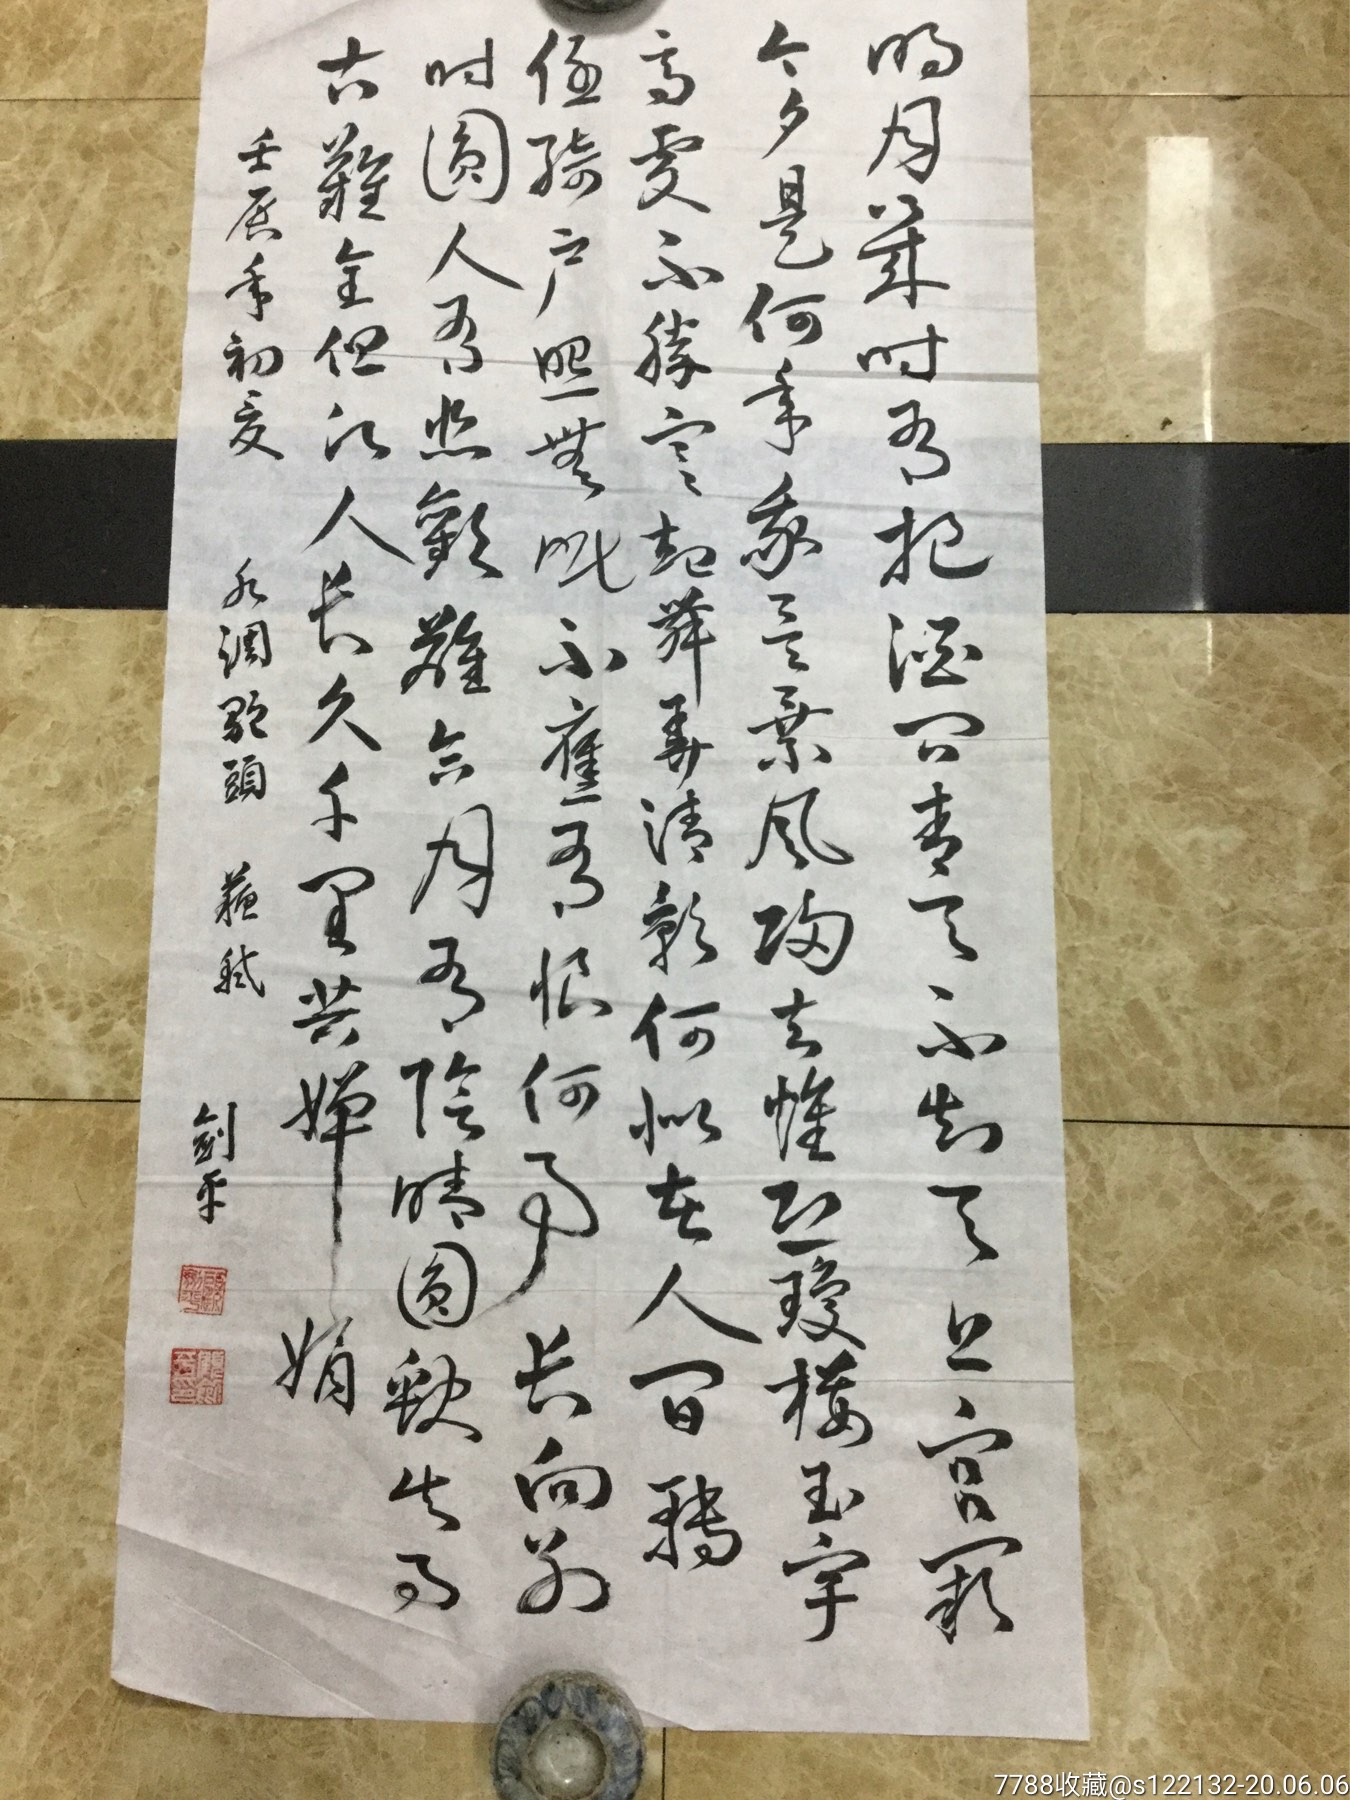 明月幾时有把酒问青天不知天上宫阙
今夕是何年我欲乘风归去惟恐瓊樓玉宇
高處不勝寒起舞弄清影何似在人间轉
低绮户照無眠不應有恨何事长向别
时圆人有悲歡難合月有陰晴圆缺此事
古難全但願人长久千里共嬋娟
壬辰年初夏 水调歌頭 蘇軾 劍平
7788收藏@s122132-20.06.06